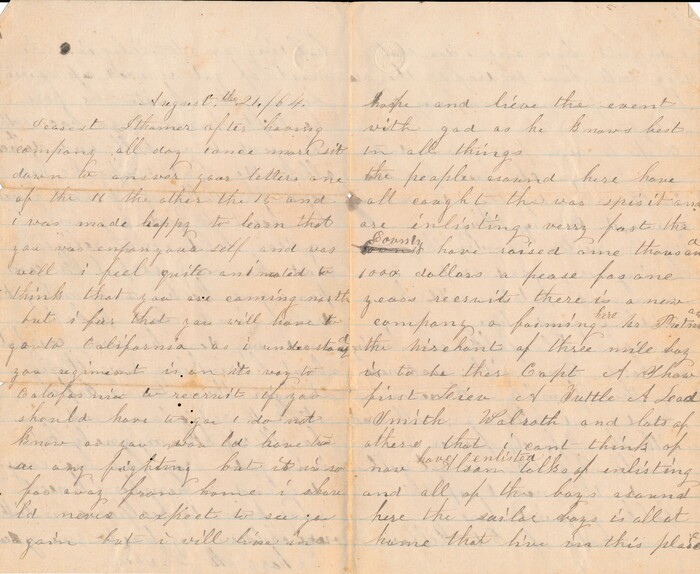 August the 21. / 64.
Dearest Ithamer after having
company all day i once more sit
down to answer your letters one
of the 11 the other the 15 and
i was made happy to learn that
you was enjoying your self and was
well i feel quite animated to
think that you are coming north
but i fear that you will have to
go to California as i understand
you regiment is on its way to
Calafornia to recruit if you
should have to go i do not
know as you would have to
se any fighting but it is so
far away from home i shou
ld never expect to see you
again but i will live in
hope and lieve the event
with god as he knows best
in all things
the people around here have
all caught the war spirit and
are enlisting verry fast the
County have raised one thousand
1000 dollars a pease for one
years recruits there is a new
company a forming here as
the mirchant of three mile bay
is to be ther Capt A Shaw
first Leieu A Tuttle A Lead
Smith Walroth and lots of
others that i cant think of
now have enlisted talks of enlisting
and all of the boys around
here the sailor boys is all at
home that live in this place